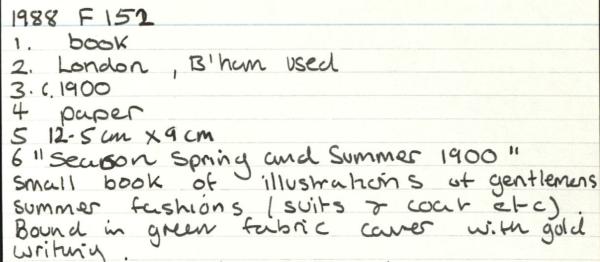 1988 F 152
1. book
2. London , B'ham used
3. c.1900
4 paper
5 12.5cm x 9cm
6 "Season Spring and Summer 1900"
Small book of illustrations of gentlemens
summer fashions (suits & coat etc).
Bound in green fabric cover with gold
writing.